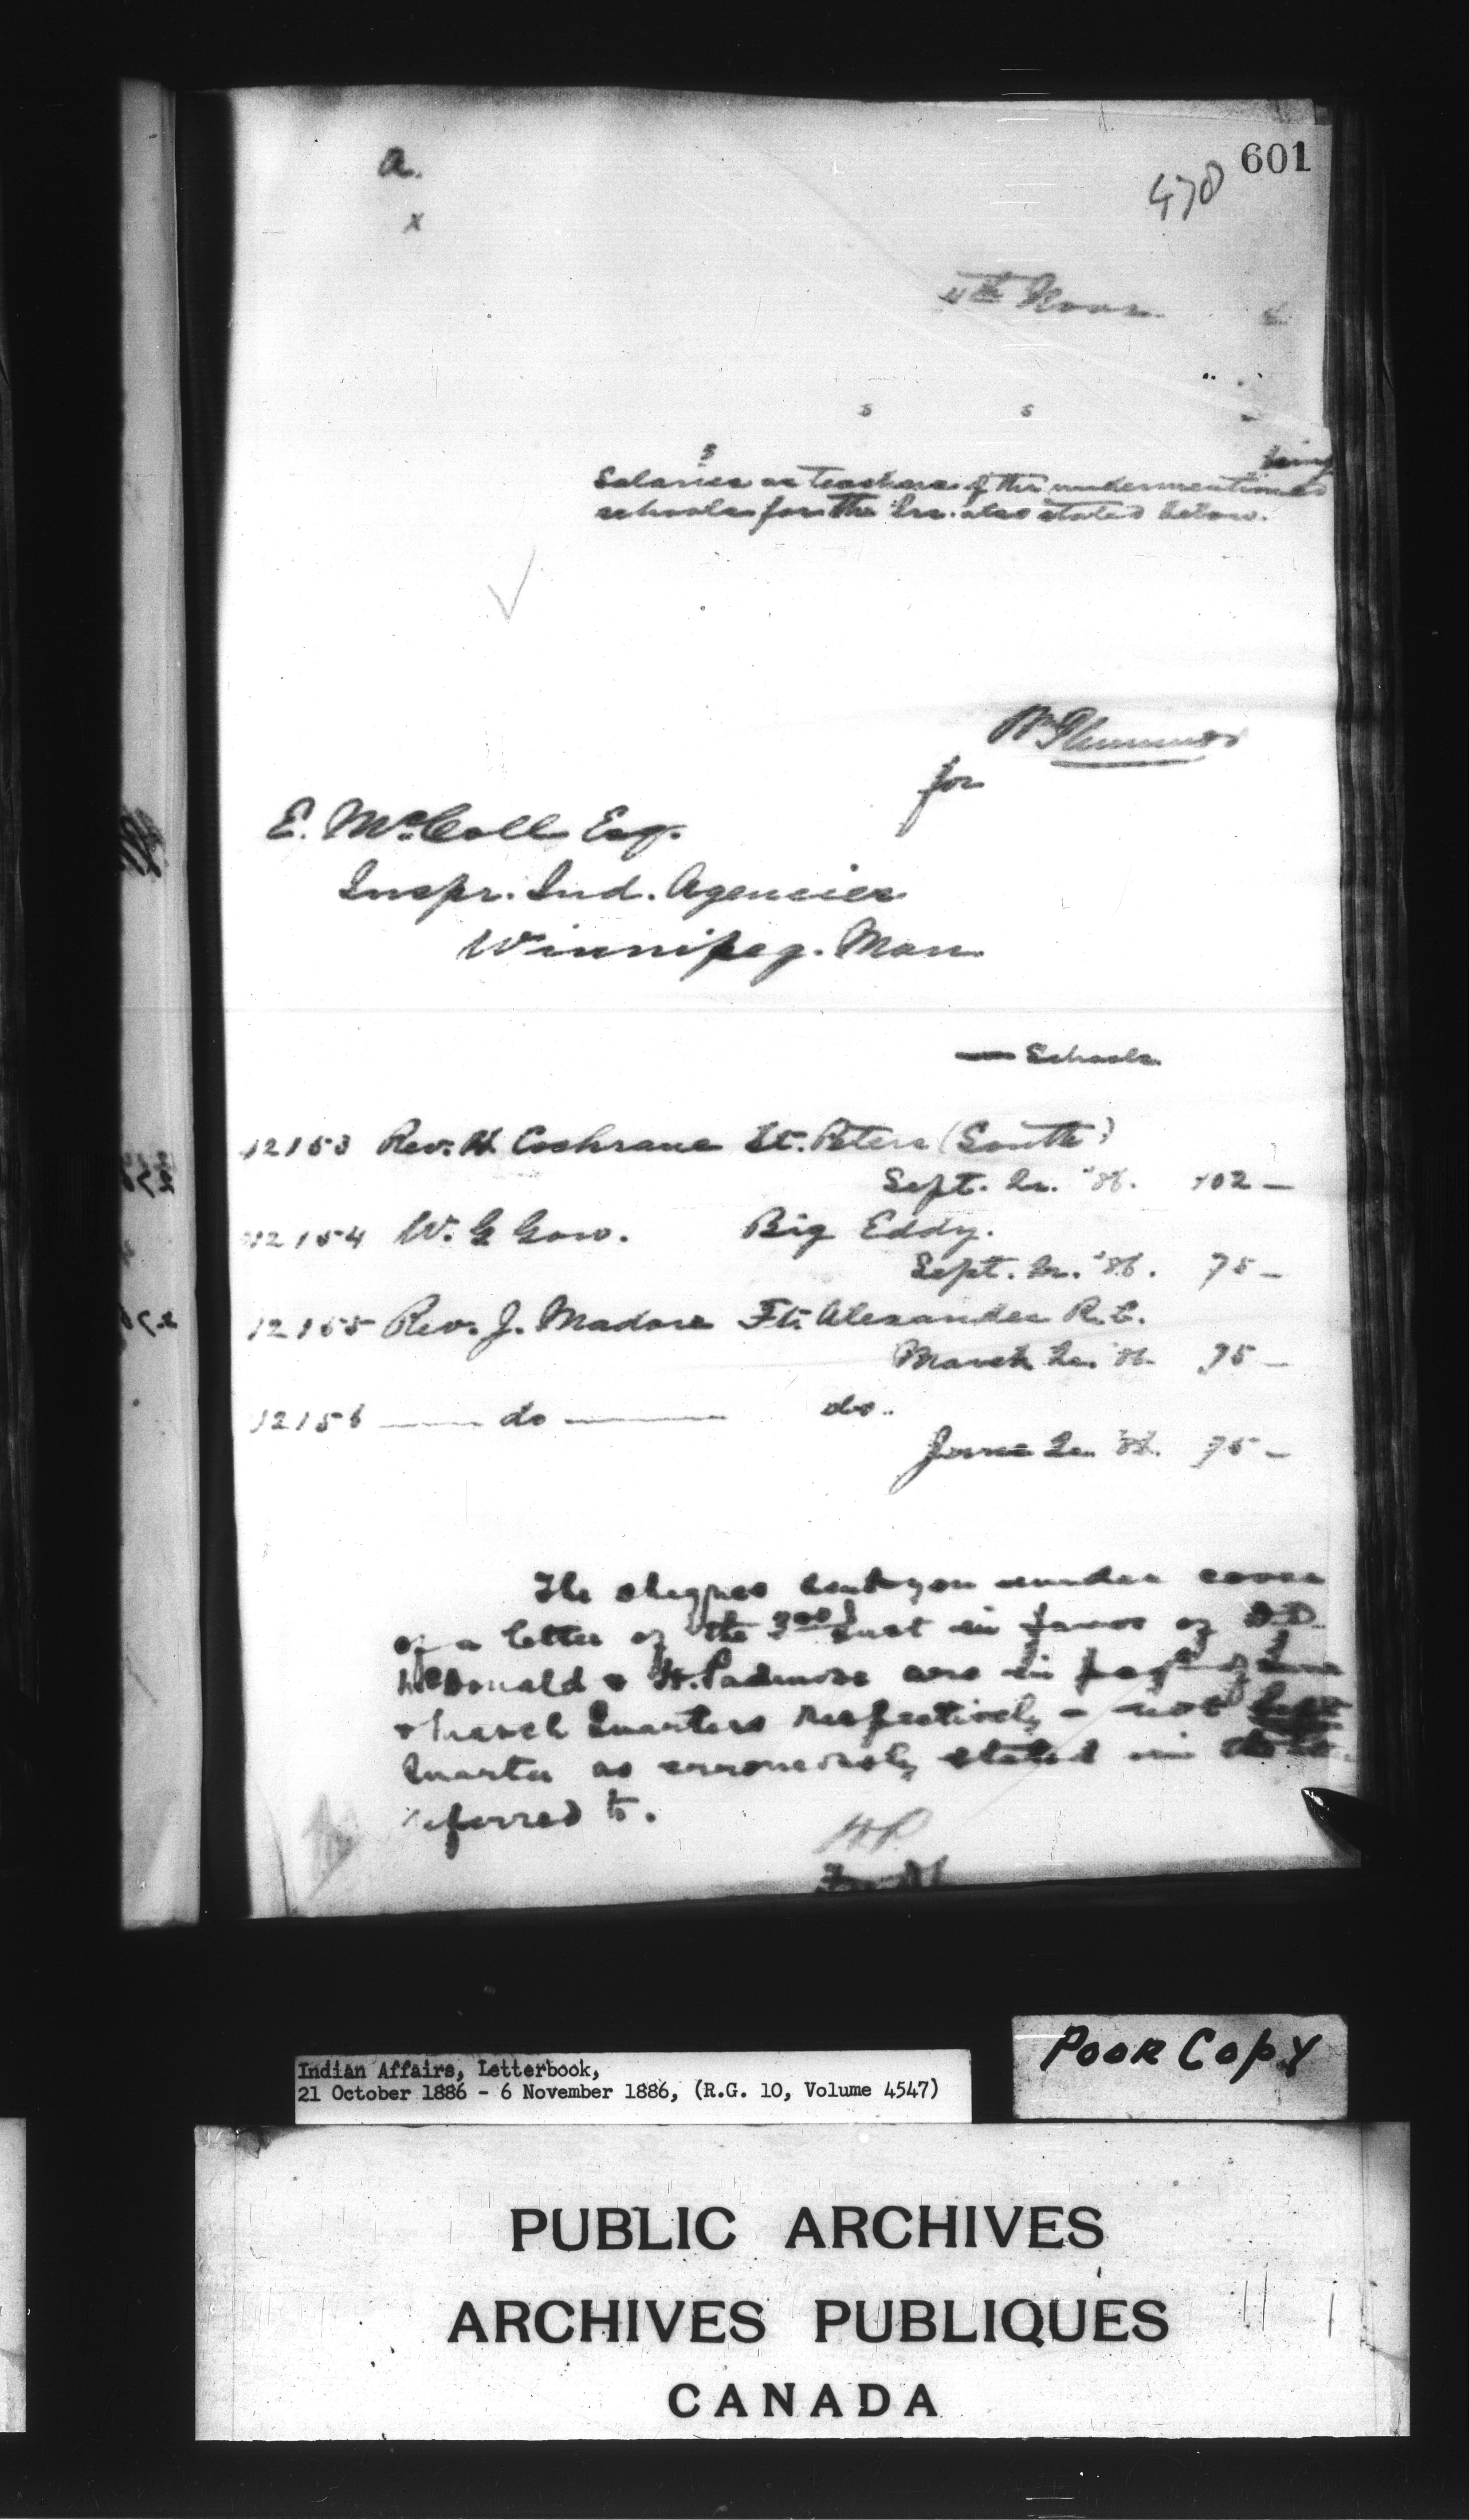 601
478
a.
x
4th Novr. 6
s s
s being
Salaries as teachers of the undermentioned
schools for the Qrs. also stated below.
Wm Plummer
for
E. McColl Esq.
Inspr. Ind. Agencies
Winnipeg. Man.
Schools
12153 Rev. H Cochrane St. Peters (South)
Sept. Qr. '86. 102 —
12154 W. G Gow. Big Eddy.
Sept. Qr. '86. 75 —
12155 Rev. J. Madore Ft. Alexander R. C.
March Qr. '86. 75 —
12156 —— do —— do..
June Qr. '86. 75 —
The cheques sent you under cover
of a letter of the inst in favor of D D
McDonald & H. Padmore are in payt of June
& March Quarters respectively – not Sept
Quarter as erroneously stated in
referred to.
Indian Affairs, Letterbook,
21 October 1886 - 6 November 1886, (R.G. 10, Volume 4547)
POOR COPY
PUBLIC ARCHIVES
ARCHIVES PUBLIQUES
CANADA